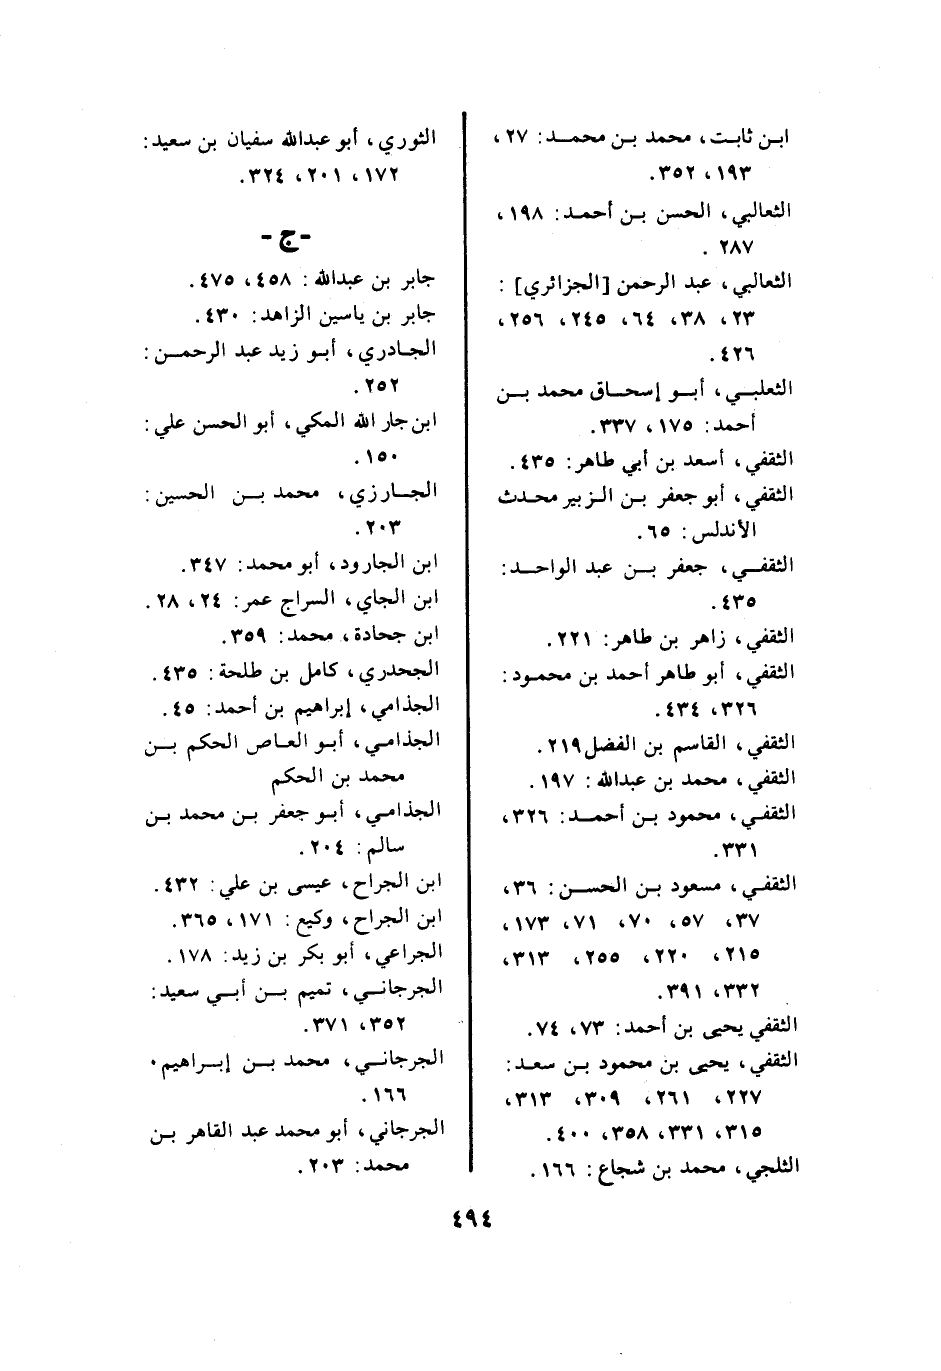 ابن ثابت، محمد بن محمد: ٢٧،
١٩٣، ٣٥٢.
الثعالبي، الحسن بن أحمد: ١٩٨،
٢٨٧ .
الثعالبي، عبد الرحمن [الجزائري] :
٢٣، ٣٨، ٦٤، ٢٤٥، ٢٥٦،
٤٢٦.
الثعلبي، أبو إسحاق محمد بن
أحمد: ١٧٥، ٣٣٧.
الثقفي، أسعد بن أبي طاهر: ٤٣٥.
الثقفي، أبو جعفر بن الزبير محدث
الأندلس: ٦٥.
الثقفي، جعفر بن عبد الواحد:
٤٣٥.
الثقفي، زاهر بن طاهر: ٢٢١.
الثقفي، أبو طاهر أحمد بن محمود:
٣٢٦، ٤٣٤.
الثقفي، القاسم بن الفضل٢١٩.
الثقفي، محمد بن عبدالله: ١٩٧.
الثقفي، محمود بن أحمد: ٣٢٦،
٣٣١.
الثقفي، مسعود بن الحسن: ٣٦،
٣٧، ٥٧، ٧٠، ٧١، ١٧٣،
٢١٥، ٢٢٠، ٢٥٥، ٣١٣،
٣٣٢، ٣٩١.
الثقفي يحيى بن أحمد: ٧٣، ٧٤.
الثقفي، يحيى بن محمود بن سعد:
٢٢٧، ٢٦١، ٣٠٩، ٣١٣،
٣١٥، ٣٣١، ٣٥٨، ٤٠٠.
الثلجي، محمد بن شجاع: ١٦٦.
الثوري، أبو عبدالله سفيان بن سعيد:
١٧٢، ٢٠١، ٣٢٤.
-ج-
جابر بن عبدالله: ٤٥٨، ٤٧٥.
جابر بن ياسين الزاهد: ٤٣٠.
الجادري، أبو زيد عبد الرحمن:
٢٥٢.
ابن جار الله المكي، أبو الحسن علي:
١٥٠.
الجارزي، محمد بن الحسين:
٢٠٣.
ابن الجارود، أبو محمد: ٣٤٧.
ابن الجاي، السراج عمر: ٢٤، ٢٨.
ابن جحادة، محمد: ٣٥٩.
الجحدري، كامل بن طلحة: ٤٣٥.
الجذامي، إبراهيم بن أحمد: ٤٥.
الجذامي، أبو العاص الحكم بن
محمد بن الحكم
الجذامي، أبو جعفر بن محمد بن
سالم: ٢٠٤.
ابن الجراح، عيسى بن علي: ٤٣٢.
ابن الجراح، وكيع: ١٧١، ٣٦٥.
الجراعي، أبو بكر بن زيد: ١٧٨.
الجرجاني، تميم بن أبي سعيد:
٣٥٢، ٣٧١.
الجرجاني، محمد بن إبراهيم٠
١٦٦.
الجرجاني، أبو محمد عبد القاهر بن
محمد: ٢٠٣.
٤٩٤